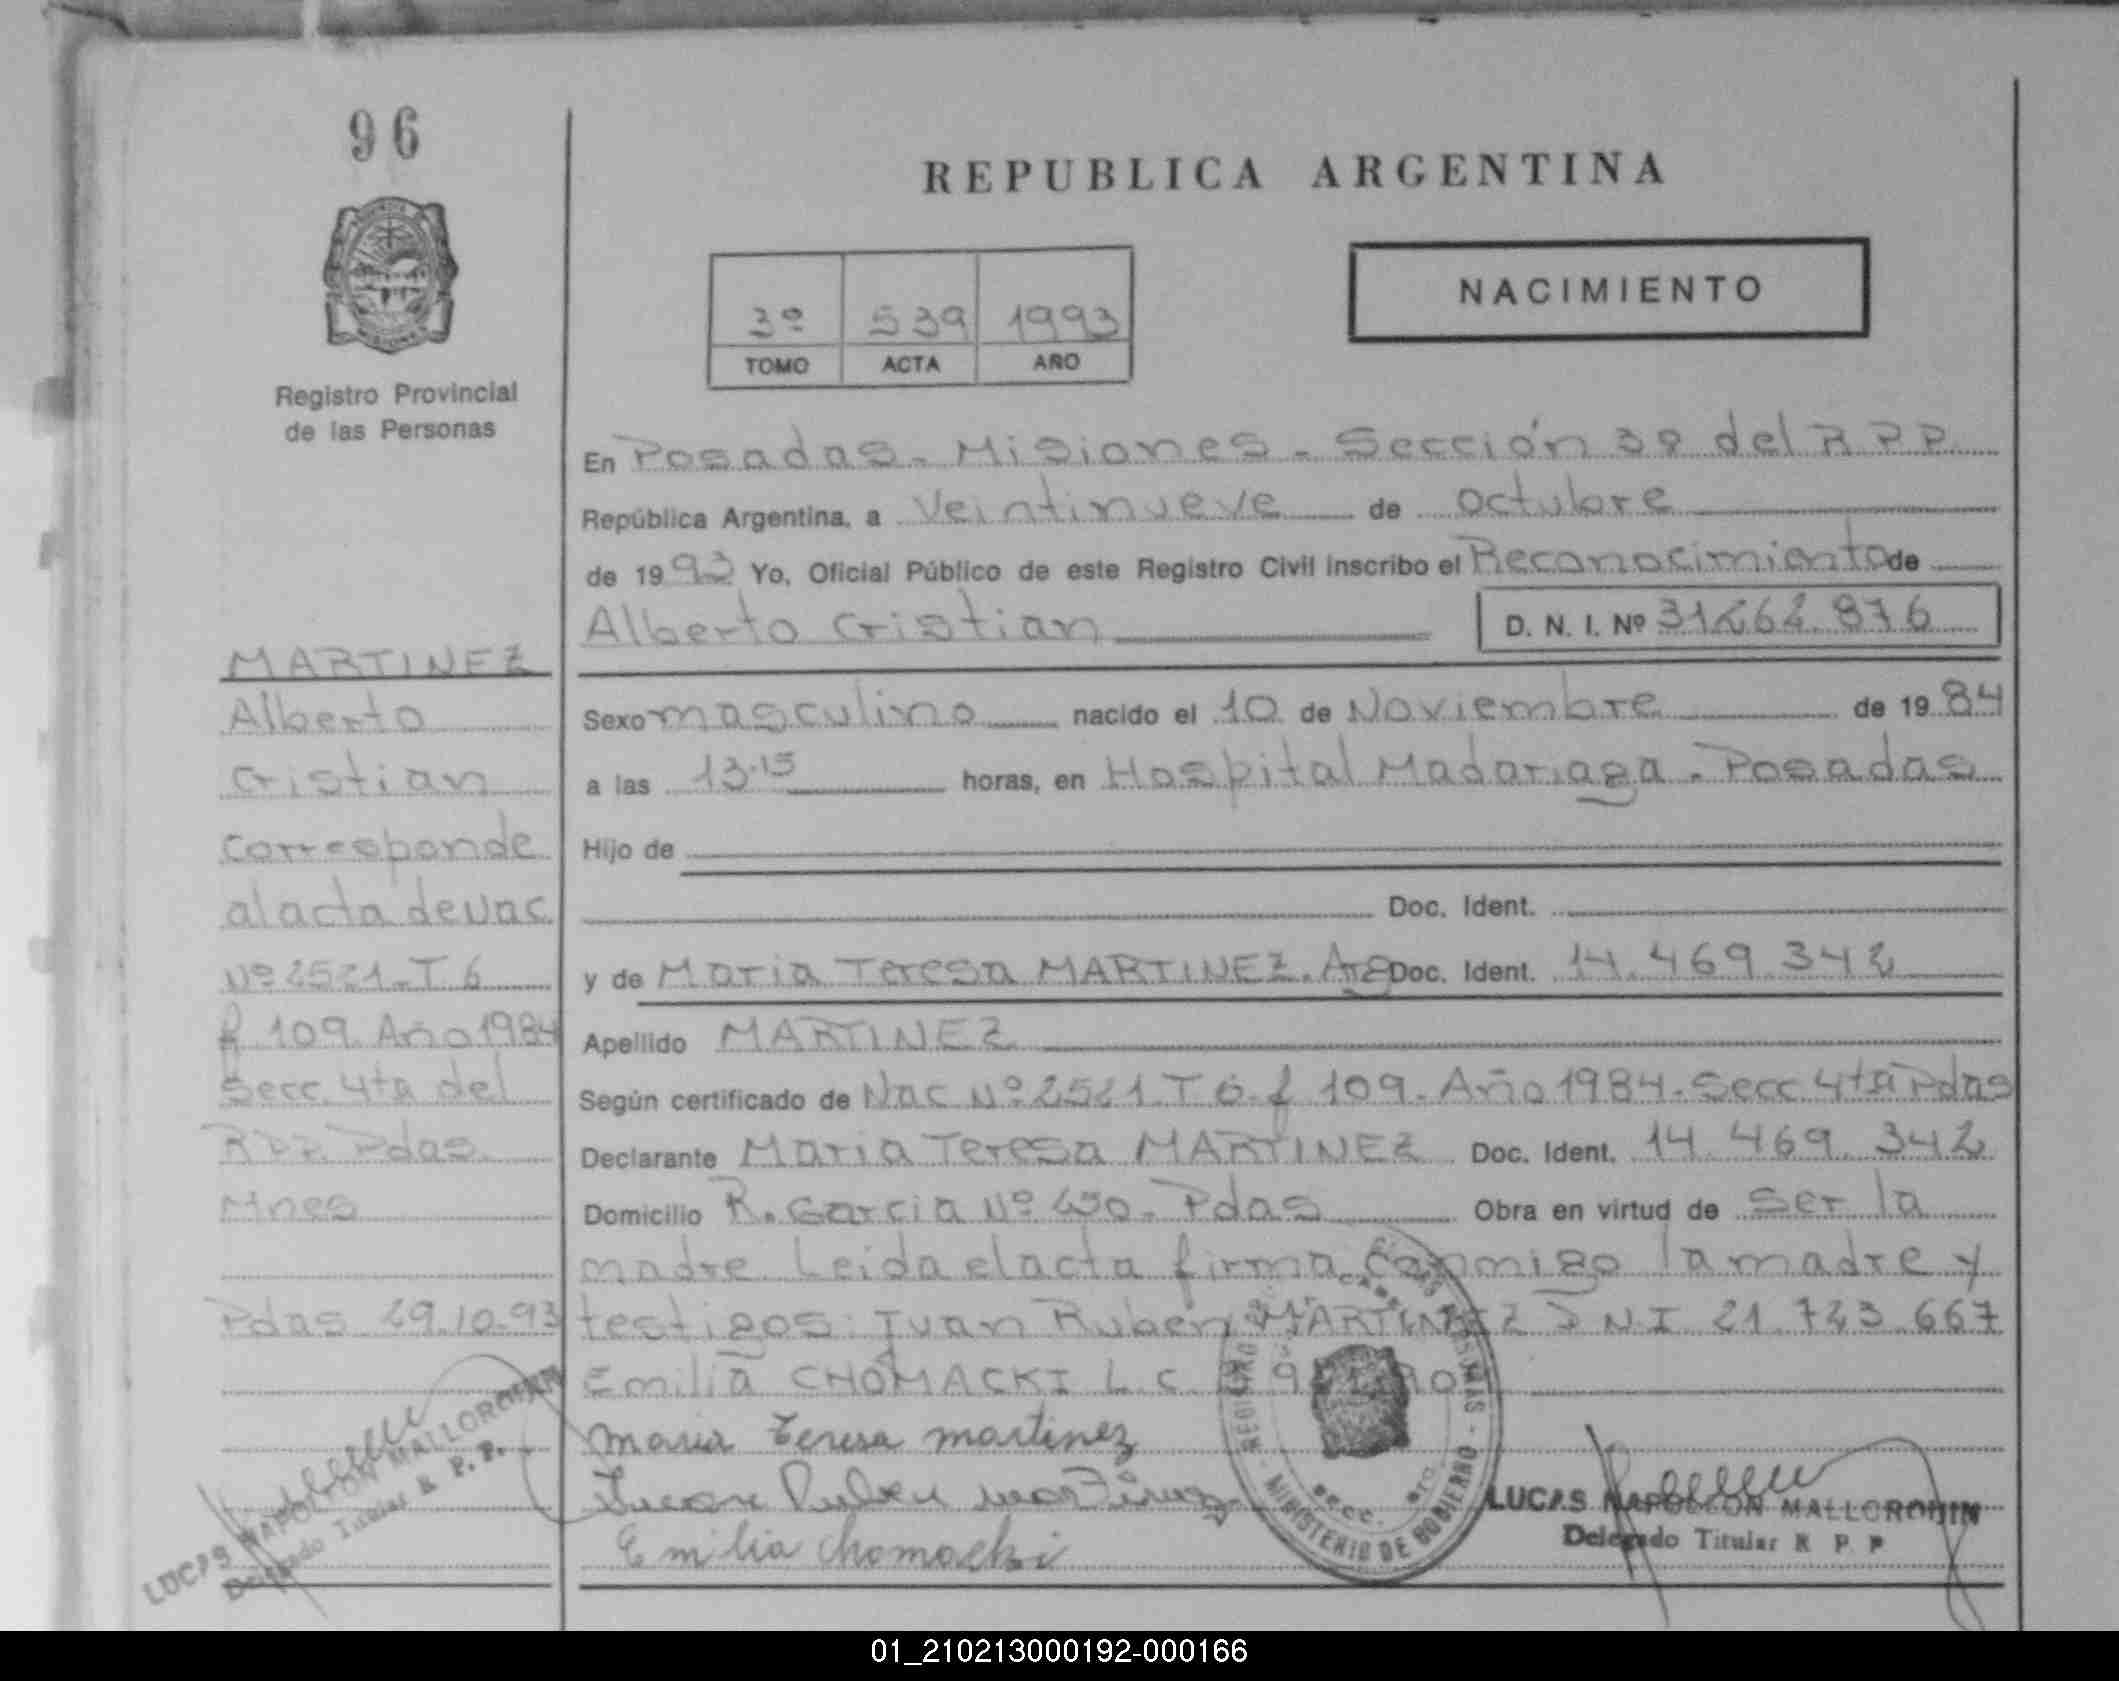 96
Registro Provincial
de las Personas
MARTINEZ
Alberto
Cristian
Corresponde
al acta de Nac.
Nº 2521-T.6
f 109. Año 1984
Secc. 4ta del
RPP. Pdas.
Mnes
Pdas 29.10.93
LUCAS NAPOLEON MALLORQUIN
Delegado Titular R. P. P.
REPUBLICA ARGENTINA
NACIMIENTO
3º 539 1993
TOMO ACTA AÑO
En Posadas - Misiones - Sección 3º del R.P.P.
República Argentina, a Veintinueve de octubre
de 1993 Yo, Oficial Público de este Registro Civil inscribo el Reconocimiento de
Alberto Cristian D. N. I. Nº 31262.876
Sexo masculino nacido el 10 de Noviembre de 1984
a las 13.15 horas, en Hospital Madariaga - Posadas
Hijo de
Doc. Ident.
y de Maria Teresa MARTINEZ. Arg Doc. Ident. 14.469.342
Apellido MARTINEZ
Según certificado de Nac Nº 2521 T 6. f 109. Año 1984. Secc. 4ta Pdas
Declarante Maria Teresa MARTINEZ Doc. Ident. 14.469.342
Domicilio R. Garcia Nº 450. Pdas Obra en virtud de ser la
madre. Leida el acta firma conmigo la madre y
testigos: Juan Ruben MARTINEZ D.N.I 21.723.667
Emilia CHOMACKI L.C.
Maria Teresa martinez
Juan Ruben martinez
Emilia Chomacki
REGISTRO
MINISTERIO DE GOBIERNO
LUCAS NAPOLEON MALLORQUIN
Delegado Titular R P P
01_210213000192-000166